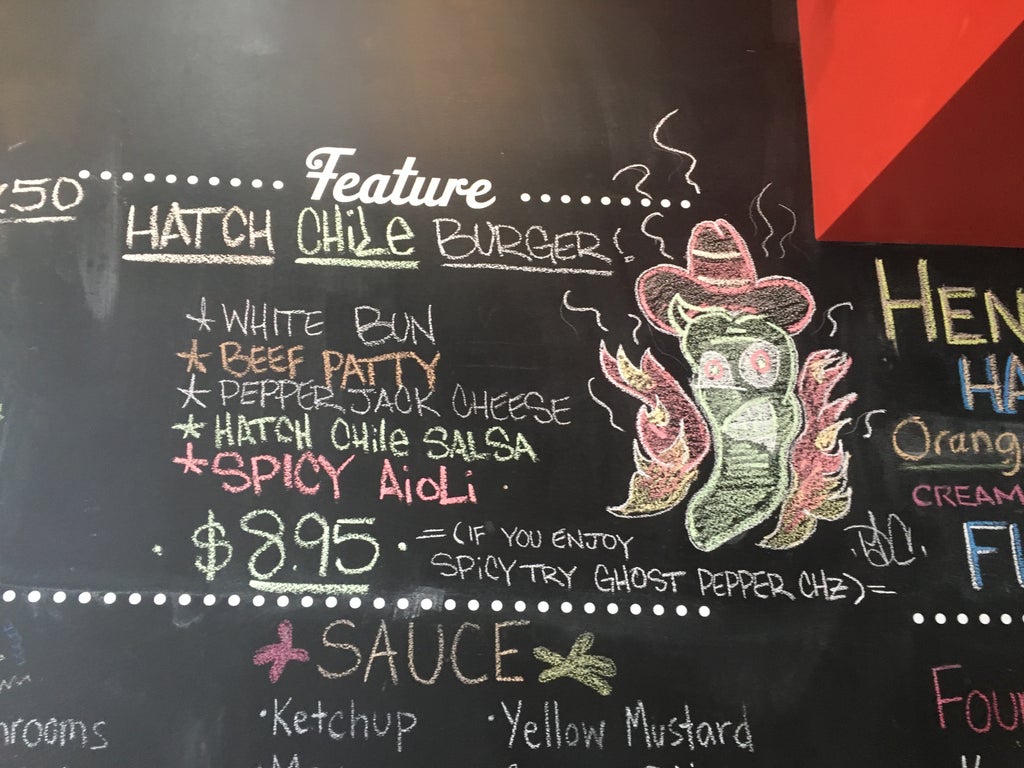 50
Feature
HATCH CHiLe BURGER!
* WHITE BUN
* BEEF PATTY
* PEPPER JACK CHEESE
* HATCH CHiLe SALSA
* SPICY AioLi
$8.95
=(IF YOU ENJOY
SPiCY TRY GHOST PEPPER CHZ)=
HEN
HA
Orang
CREAM
FL
SAUCE
·Ketchup
·Yellow Mustard
rooms
FOU